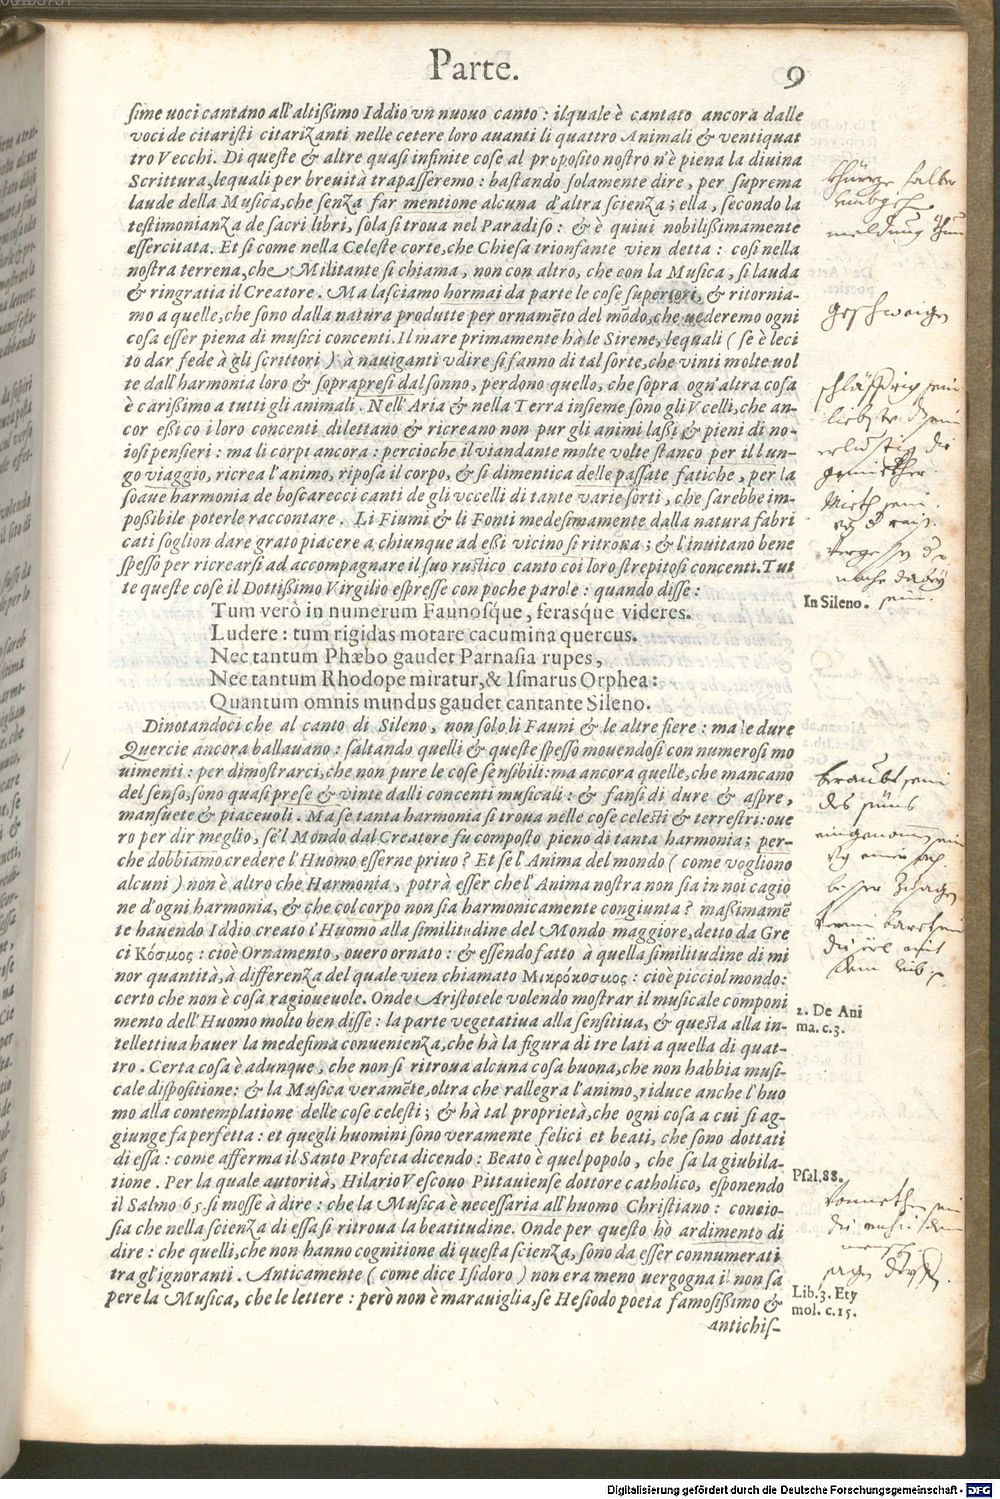 Parte.
9
sime uoci cantano all'altißimo Iddio vn nuouo canto: ilquale è cantato ancora dalle
voci de citaristi citarizanti nelle cetere loro auanti li quattro Animali & ventiquat
tro Vecchi. Di queste & altre quasi infinite cose al proposito nostro n'è piena la diuina
Scrittura, lequali per breuità trapasseremo: bastando solamente dire, per suprema
laude della Musica, che senza far mentione alcuna d'altra scienza; ella, secondo la
testimonianza de sacri libri, sola si troua nel Paradiso: & è quiui nobilißimamente
essercitata. Et si come nella Celeste corte, che Chiesa trionfante vien detta: cosi nella
nostra terrena, che Militante si chiama, non con altro, che con la Musica, si lauda
& ringratia il Creatore. Ma lasciamo hormai da parte le cose superiori, & ritornia-
mo a quelle, che sono dalla natura produtte per ornamēto del mōdo, che uederemo ogni
cosa esser piena di musici concenti. Il mare primamente hà le Sirene, lequali ( se è leci
to dar fede à gli scrittori ) à nauiganti vdire si fanno di tal sorte, che vinti molte uol
te dall'harmonia loro & soprapresi dal sonno, perdono quello, che sopra ogn'altra cosa
è carißimo a tutti gli animali. Nell'Aria & nella Terra insieme sono gli Vcelli, che an-
cor eßi co i loro concenti dilettano & ricreano non pur gli animi laßi & pieni di no-
iosi pensieri: ma li corpi ancora: percioche il viandante molte volte stanco per il lun-
go viaggio, ricrea l'animo, riposa il corpo, & si dimentica delle passate fatiche, per la
soaue harmonia de boscarecci canti de gli vccelli di tante varie sorti, che sarebbe im-
poßibile poterle raccontare. Li Fiumi & li Fonti medesimamente dalla natura fabri
cati soglion dare grato piacere a chiunque ad eßi vicino si ritroua; & l'inuitano bene
spesso per ricrearsi ad accompagnare il suo rustico canto coi loro strepitosi concenti. Tut
te queste cose il Dottißimo Virgilio espresse con poche parole: quando disse:
In Sileno.
Tum verò in numerum Faunosq́ue, ferasque videres.
Ludere: tum rigidas motare cacumina quercus.
Nec tantum Phæbo gaudet Parnasia rupes,
Nec tantum Rhodope miratur, & Ismarus Orphea:
Quantum omnis mundus gaudet cantante Sileno.
Dinotandoci che al canto di Sileno, non solo li Fauni & le altre fiere: ma le dure
Quercie ancora ballauano: saltando quelli & queste spesso mouendosi con numerosi mo
uimenti: per dimostrarci, che non pure le cose sensibili: ma ancora quelle, che mancano
del senso, sono quasi prese & vinte dalli concenti musicali: & fansi di dure & aspre,
mansuete & piaceuoli. Ma se tanta harmonia si troua nelle cose celesti & terrestri: oue
ro per dir meglio, se'l Mondo dal Creatore fu composto pieno di tanta harmonia; per-
che dobbiamo credere l'Huomo esserne priuo? Et se l'Anima del mondo ( come vogliono
alcuni ) non è altro che Harmonia, potrà esser che l'Anima nostra non sia in noi cagio
ne d'ogni harmonia, & che col corpo non sia harmonicamente congiunta? maßimamē
te hauendo Iddio creato l'Huomo alla similitudine del Mondo maggiore, detto da Gre
ci Κόσμος: cioè Ornamento, ouero ornato: & essendo fatto à quella similitudine di mi
nor quantità, à differenza del quale vien chiamato Μικρόκοσμος: cioè picciol mondo:
certo che non è cosa ragioueuole. Onde Aristotele volendo mostrar il musicale componi
2. De Ani
mento dell'Huomo molto ben disse: la parte vegetatiua alla sensitiua, & questa alla in-
ma. c.3.
tellettiua hauer la medesima conuenienza, che hà la figura di tre lati a quella di quat-
tro. Certa cosa è adunque, che non si ritroua alcuna cosa buona, che non habbia musi-
cale dispositione: & la Musica veramēte, oltra che rallegra l'animo, riduce anche l'huo
mo alla contemplatione delle cose celesti; & hà tal proprietà, che ogni cosa a cui si ag-
giunge fa perfetta: et quegli huomini sono veramente felici et beati, che sono dottati
di essa: come afferma il Santo Profeta dicendo: Beato è quel popolo, che sa la giubila-
Psal. 88.
tione. Per la quale autorità, Hilario Vescouo Pittauiense dottore catholico, esponendo
il Salmo 65. si mosse à dire: che la Musica è necessaria all'huomo Christiano: concio-
sia che nella scienza di essa si ritroua la beatitudine. Onde per questo hò ardimento di
dire: che quelli, che non hanno cognitione di questa scienza, sono da esser connumerati
tra gl'ignoranti. Anticamente ( come dice Isidoro ) non era meno uergogna il non sa
Lib. 3. Ety
pere la Musica, che le lettere: però non è marauiglia, se Hesiodo poeta famosißimo &
mol. c.15.
antichis-
Digitalisierung gefördert durch die Deutsche Forschungsgemeinschaft - DFG